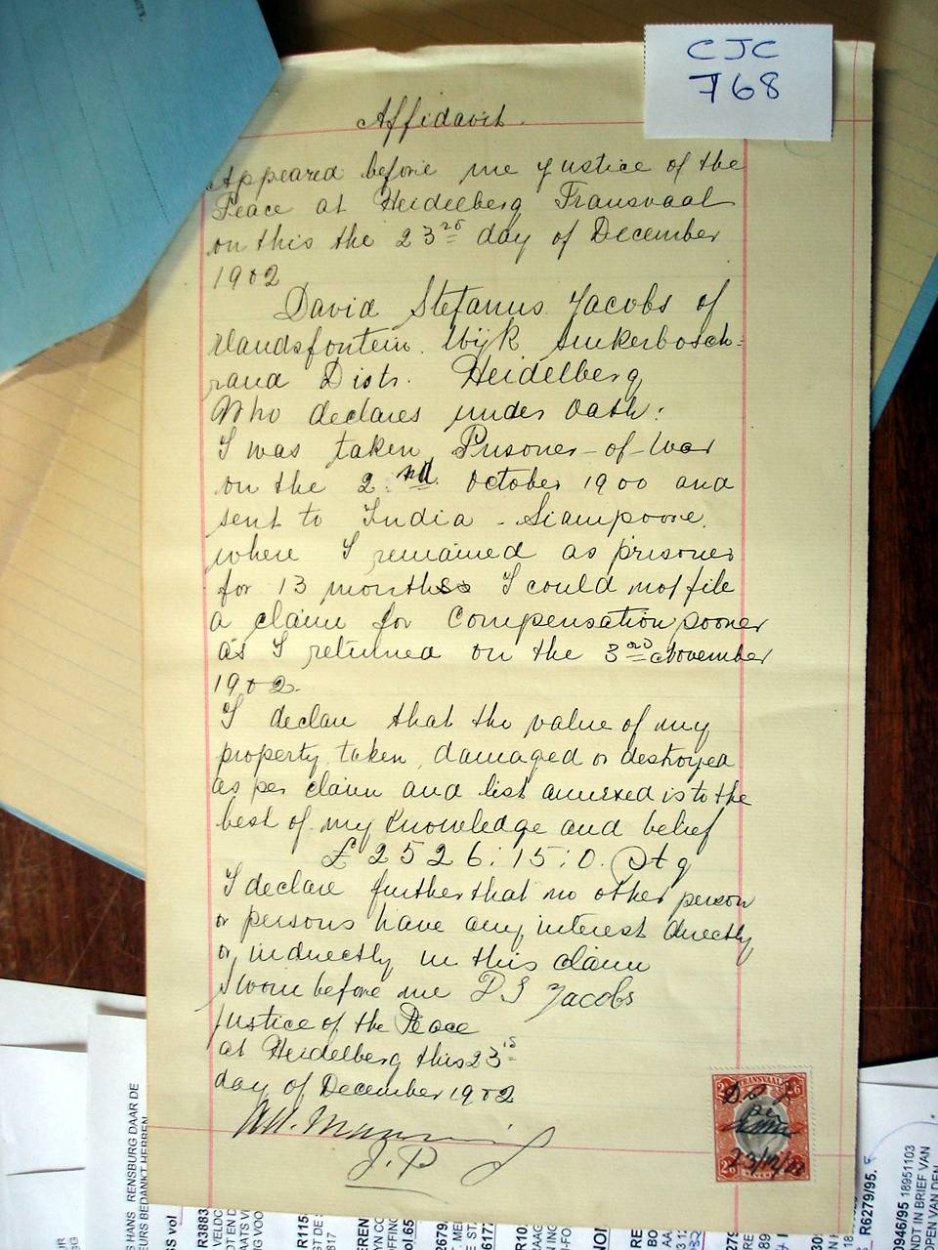 CJC
768
Affidavit.
Appeared before me Justice of the
Peace at Heidelberg Transvaal
on this the 23rd day of December
1902
David Stefanus Jacobs of
Wijk Suikerbosch-
rand Distr. Heidelberg
Who declares under oath:
I was taken Prisoner-of-War
on the 2nd October 1900 and
sent to India - Siampoore.
where I remained as prisoner
for 13 months I could not file
a claim for Compensation sooner
as I returned on the 3rd November
1902.
I declare that the value of my
property taken, damaged or destroyed
as per claim and list annexed is to the
best of my knowledge and belief
£ 2526:15:0. Stg
I declare further that no other person
or persons have any interest directly
or indirectly in this claim
Sworn before me D S Jacobs
Justice of the Peace
at Heidelberg this 23
day of December 1902
J.P
TRANSVAAL
2/6
D S J
23/12/02
HANS RENSBURG DAAR DE
EURS BEDANKT HEBBEN
SS vol
R3883
R6279/95.
2946/95 18951103
NDT IN BRIEF VAN